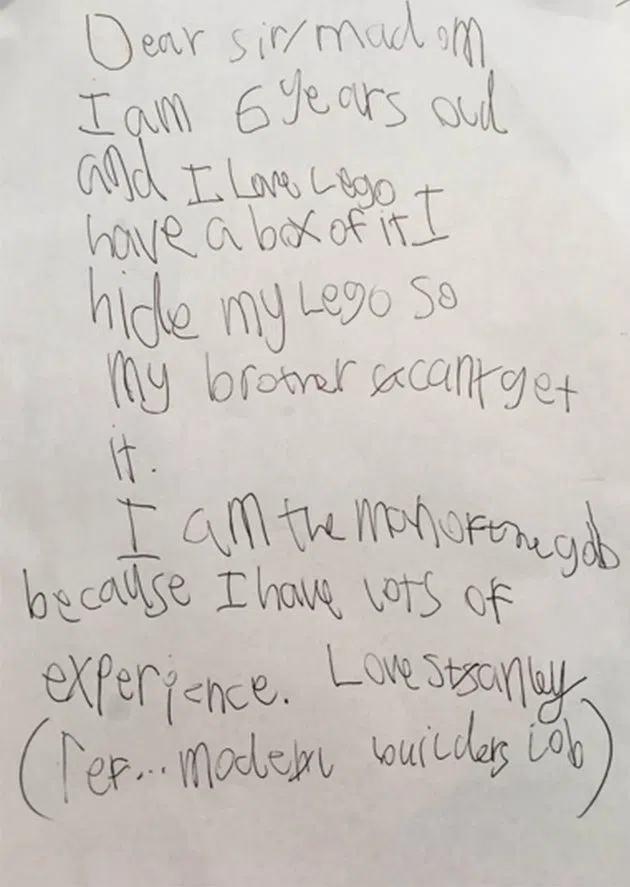 Dear sir/madam
I am 6 years oud
and I Love Lego
have a box of it I
hide my Lego so
my brother cant get
it.
I am the man of the gob
because I have lots of
experience. Love Stanley
(ref... model builders job)